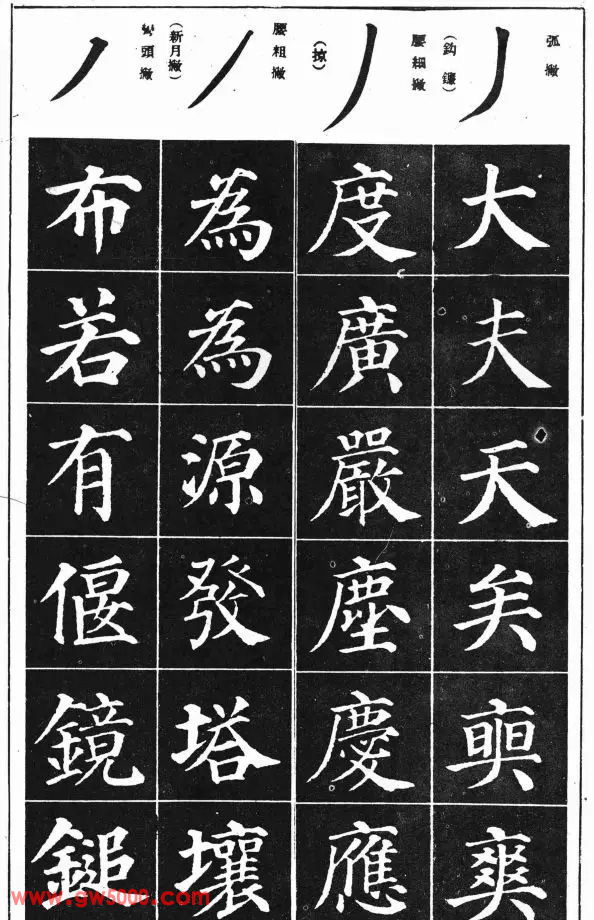 弧撇
(鈎鐮)
大夫天矣爽
腰細撇
(掠)
度廣嚴塵慶應
腰粗撇
(新月撇)
為為源發塔壤
彎頭撇
布若有偃鏡鎚
www.gw5000.com